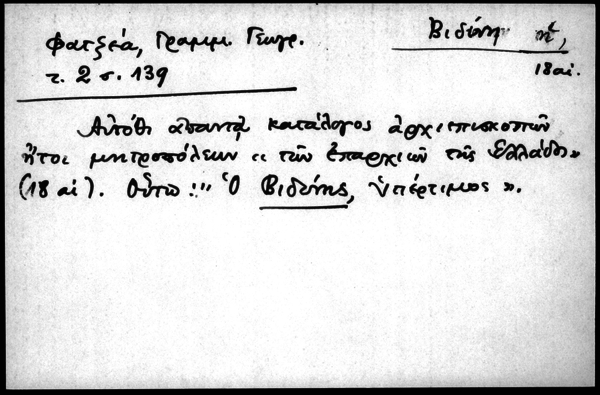 Φατζεά, Γραμμ. Γεωγρ.
τ. 2 σ. 139
Βιδύνη ἡ,
18 αἰ.
Αὐτόθι ἀπαντᾷ κατάλογος ἀρχιεπισκοπῶν
ἤτοι μητροπόλεων «τῶν ἐπαρχιῶν τῆς Ἑλλάδος»
(18 αἰ). Οὕτω: "Ὁ Βιδύνης, ὑπέρτιμος».